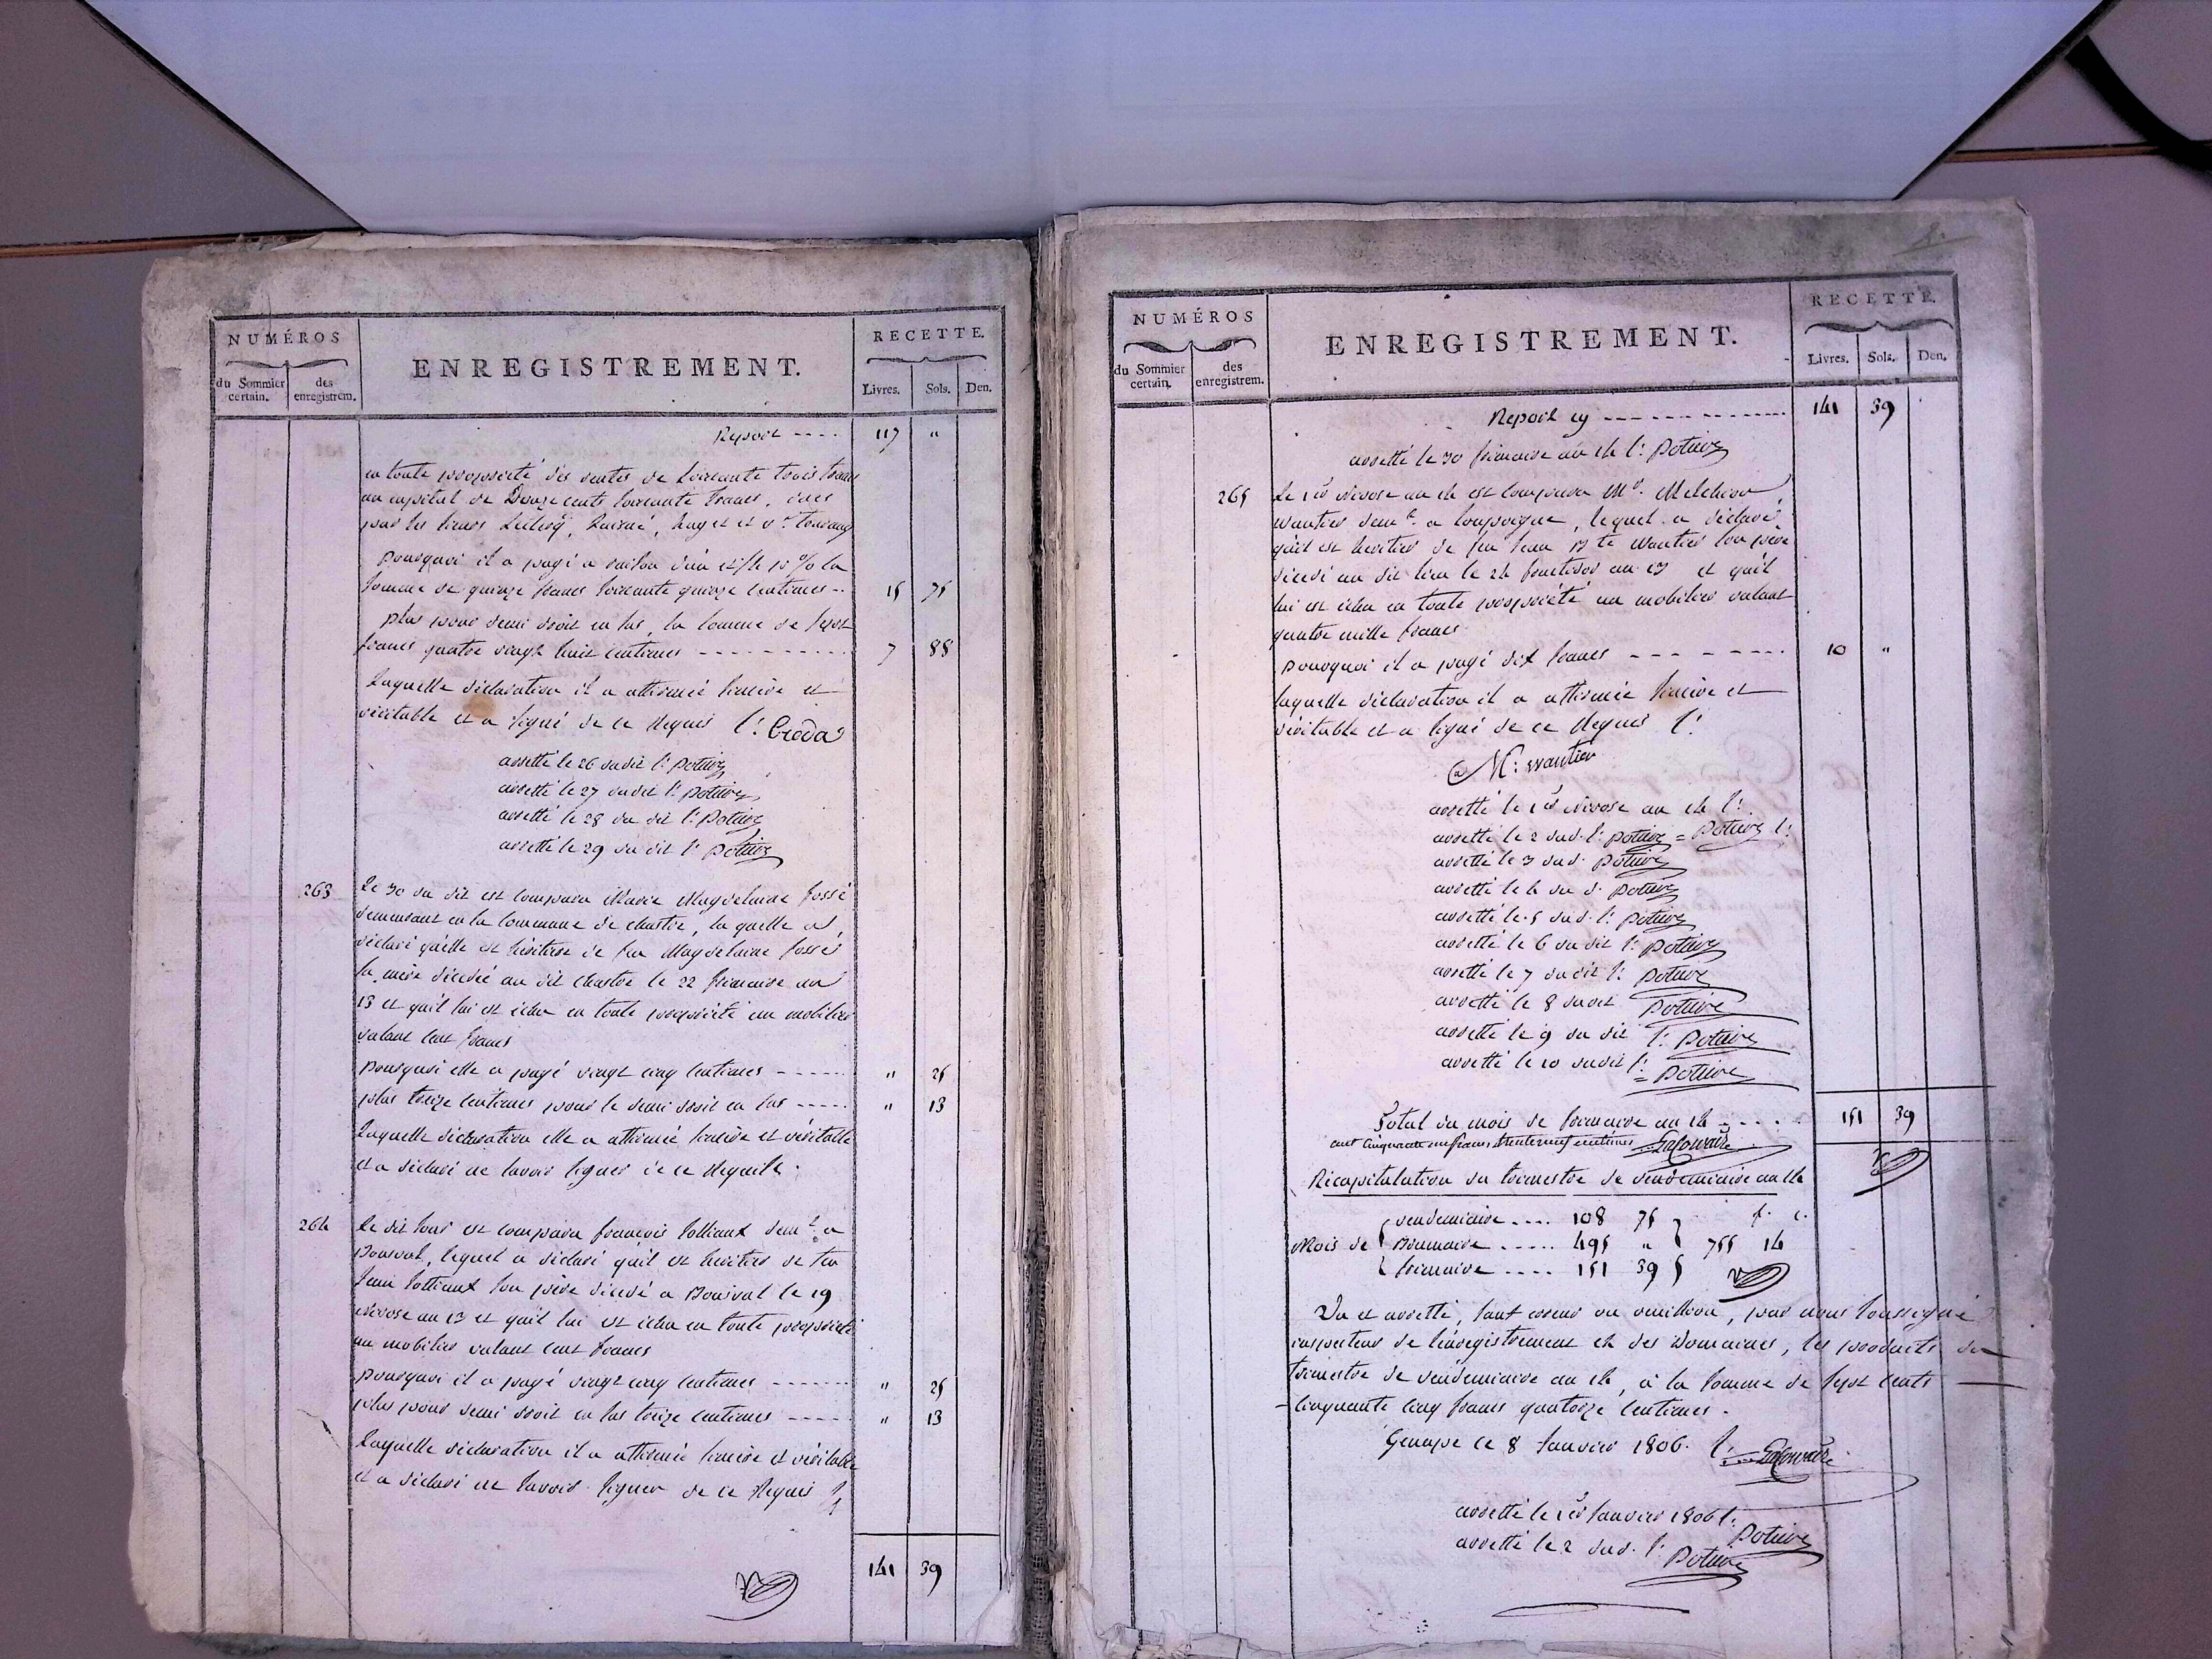 NUMÉROS
du Sommier certain.
des enregistrem.
ENREGISTREMENT.
RECETTE.
Livres. Sols. Den.
Report ---- 117 "
en toute propriété des rentes de soixante trois francs
au capital de Douze cents soixante francs, dues
par les sieurs
pourquoi il a payé a raison d'un et ¼ p% la
somme de quinze francs soixante quinze centimes -- 15 75
plus pour demi droit en sus, la somme de sept
francs quatre vingt huit centimes ---------- 7 88
Laquelle déclaration il a affirmée sincère et
véritable et a signé de ce requis s:
arretté le 26 du dit s: Potiere
arretté le 27 du dit s: Potiere
arretté le 28 du dit s: Potiere
arretté le 29 du dit s: Potiere
263 Le 30 du dit est comparu Marie Magdelaine fossé
demeurant en la commune de chastre, la quelle a
déclaré qu'elle est héritiere de feu Magdelaine fossé
sa mère décédée au dit chastre le 22 frimaire an
13 et qu'il lui est échu en toute propriété un mobilier
valant cent francs
pourquoi elle a payé vingt cinq centimes ------ " 25
plus treize centimes pour le demi droit en sus ----- " 13
Laquelle déclaration elle a affirmée sincère et véritable
et a déclaré ne savoir signer de ce requise
264 Le dit jour est comparu françois demt. a
Bousval, lequel a déclaré qu'il est heritier de feu
son père décédé a Bousval le 19
nivose an 13 et qu'il lui est échu en toute propriété
un mobilier valant cent francs
pourquoi il a payé vingt cinq centimes ------- " 25
plus pour demi droit en sus treize centimes ----- " 13
Laquelle déclaration il a affirmée sincère et véritable
et a déclaré ne savoir signer de ce requis
141 39
8.
NUMÉROS
du Sommier certain.
des enregistrem.
ENREGISTREMENT.
RECETTE.
Livres. Sols. Den.
Report cy ------------- 141 39
arretté le 30 frimaire an 14 s: Potiere
265 Le 1er Nivose an 14 est comparu Mr. Melchior
Wautier demt. a Loupoigne, lequel a déclaré
qu'il est heritier de feu Jean Bte Wautier son père
décédé au dit lieu le 24 fructidor an 13 et qu'il
lui est échu en toute propriété un mobilier valant
quatre mille francs
pourquoi il a payé dix francs -------- 10 "
Laquelle déclaration il a affirmée sincère et
véritable et a signé de ce requis s:
M: wautier
arretté le 1er nivose an 14 s:
arretté le 2 du d. s: potiere = Potiere s:
arretté le 3 du d. potiere
arretté le 4 du d. potiere
arretté le 5 du d. s: potiere
arretté le 6 du dit s: potiere
arretté le 7 du dit s: potiere
arretté le 8 du dit potiere
arretté le 9 du dit s: potiere
arretté le 10 du dit s: = potiere
Total du mois de frimaire an 14 - - - - 151 39
cent cinquante un francs trente neuf centimes
Récapitulation du trimestre de vendemiaire an 14
vendemiaire .... 108 75 f. c.
Mois de Brumaire ..... 495 " 755 14
frimaire .... 151 39
Vu et arretté, sauf erreur ou omission, par nous soussigné
inspecteur de l'enregistrement et des Domaines, les produits du
trimestre de vendemiaire an 14, à la somme de sept cents
cinquante cinq francs quatorze centimes.
Genape ce 8 Janvier 1806. s:
arretté le 1er Janvier 1806 s: Potiere
arretté le 2 du d. s: Potiere